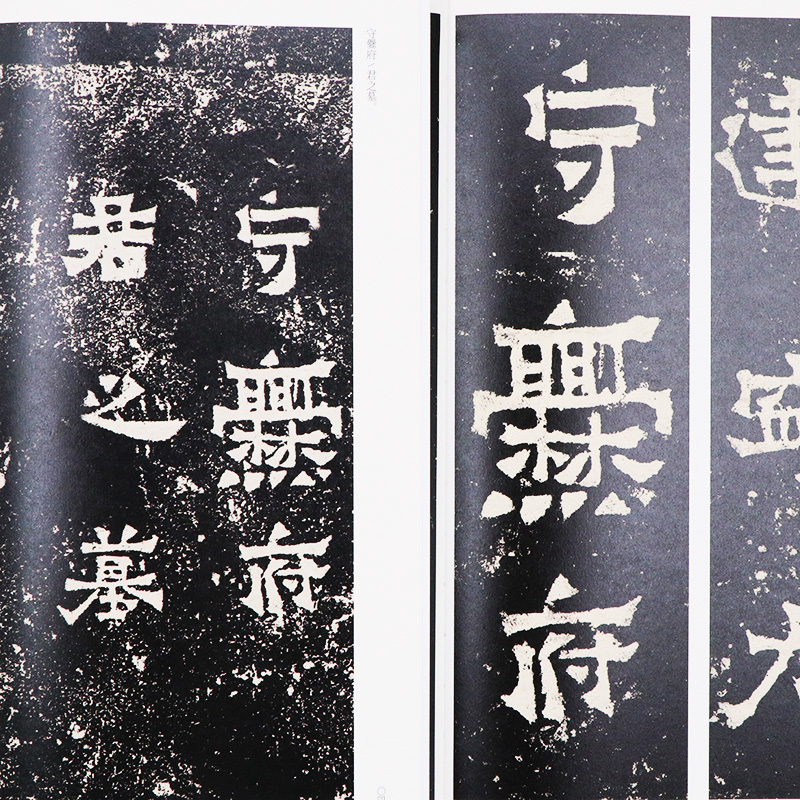 守爨府
守爨府／君之墓。
守爨府
君之墓